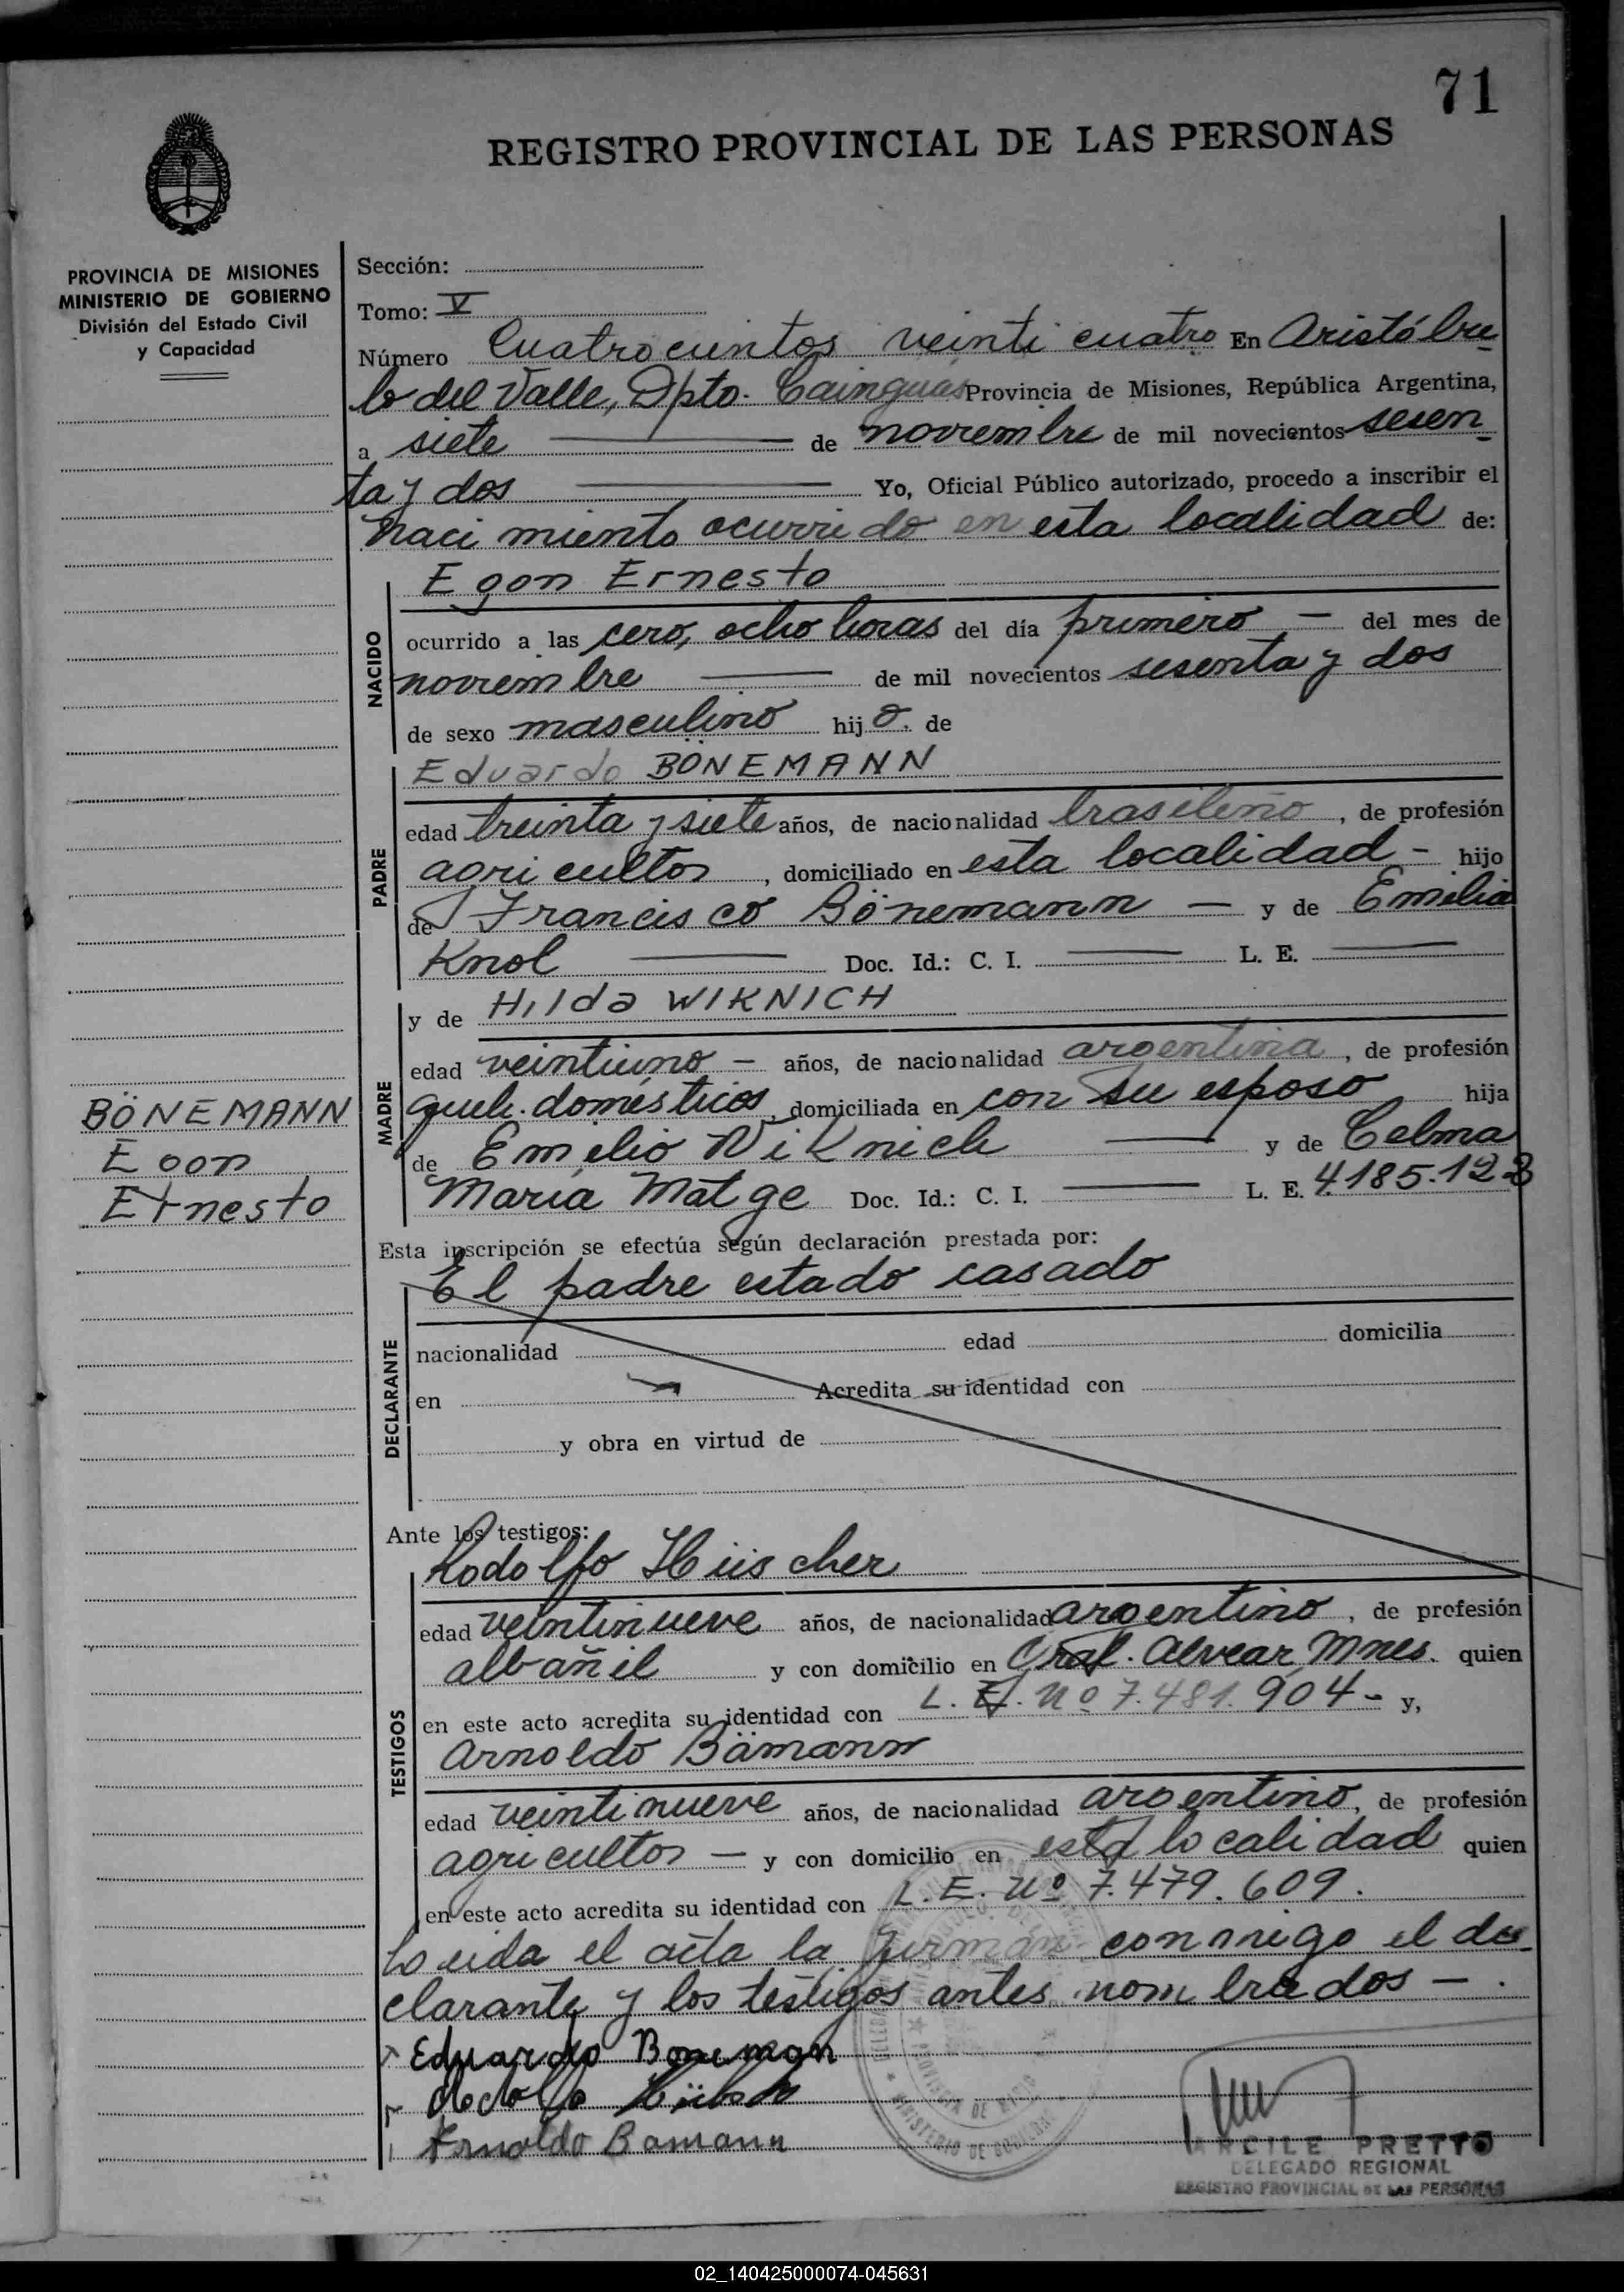 71
REGISTRO PROVINCIAL DE LAS PERSONAS
PROVINCIA DE MISIONES
MINISTERIO DE GOBIERNO
División del Estado Civil
y Capacidad
Sección:
Tomo: V
Número Cuatrocientos veinti cuatro En Aristóbu-
lo del Valle, Dpto. Cainguás Provincia de Misiones, República Argentina,
a siete — de noviembre de mil novecientos sesen-
ta y dos — Yo, Oficial Público autorizado, procedo a inscribir el
naci miento ocurrido en esta localidad de:
NACIDO
Egon Ernesto
ocurrido a las cero, ocho horas del día primero — del mes de
noviembre — de mil novecientos sesenta y dos
de sexo masculino hijo. de
PADRE
Eduardo BÖNEMANN
edad treinta y siete años, de nacionalidad brasileño, de profesión
agricultor, domiciliado en esta localidad - hijo
de Francisco Bönemann — y de Emilia
Knol — Doc. Id.: C. I. — L. E. —
MADRE
y de Hilda WIKNICH
edad veintiuno — años, de nacionalidad argentina, de profesión
queh. domésticos, domiciliada en con su esposo hija
de Emilio Wiknich — y de Celma
María Matge Doc. Id.: C. I. — L. E. 4.185.123
BÖNEMANN
Egon
Ernesto
Esta inscripción se efectúa según declaración prestada por:
El padre estado casado
DECLARANTE
nacionalidad edad domicilia
en Acredita su identidad con
y obra en virtud de
Ante los testigos:
TESTIGOS
Rodolfo Hüscher
edad veintinueve años, de nacionalidad argentino, de profesión
albañil y con domicilio en Gral. Alvear, Mnes. quien
en este acto acredita su identidad con L. E. Nº 7.481.904 - y,
Arnoldo Bämann
edad veintinueve años, de nacionalidad argentino, de profesión
agricultor — y con domicilio en esta localidad quien
en este acto acredita su identidad con L. E. Nº 7.479.609.
Leida el acta la firman conmigo el de-
clarante y los testigos antes nombrados — .
Eduardo Boneman
Arnoldo Bamann
ARCILE PRETTO
DELEGADO REGIONAL
REGISTRO PROVINCIAL DE LAS PERSONAS
02_140425000074-045631